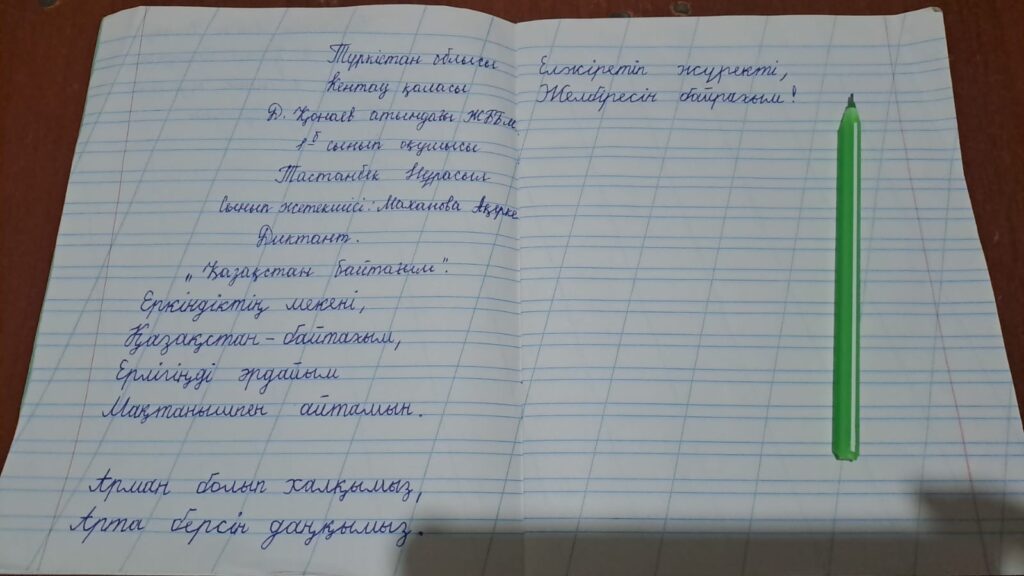 Түркістан облысы
Кентау қаласы
Д. Қонаев атындағы ЖББМ
1 "Б" сынып оқушысы
Тастанбек Нұрасыл
Сынып жетекшісі: Маханова Ақерке
Диктант.
„Қазақстан байтағым".
Еркіндіктің мекені,
Қазақстан - байтағым,
Ерлігіңді әрдайым
Мақтанышпен айтамын.
Арман болып халқымыз,
Арта берсін даңқымыз.
Елжіретіп жүректі,
Желбіресін байрағым!